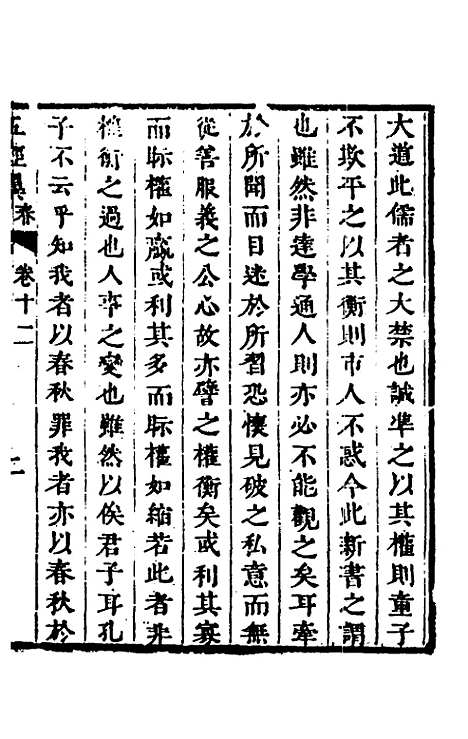 大道此儒者之大禁也誠準之以其權則童子
不欺平之以其衡則市人不惑今此新書之謂
也雖然非達學通人則亦必不能觀之矣耳牽
於所聞而目迷於所習恐懷見破之私意而無
從善服義之公心故亦譬之權衡矣或利其寡
而眎權如羸或利其多而眎權如縮若此者非
權衡之過也人事之變也雖然以俟君子耳孔
子不云乎知我者以春秋罪我者亦以春秋於
五經異 春 卷十二